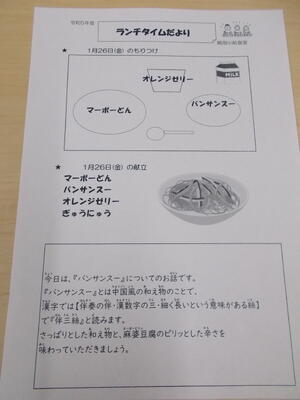 令和5年度
ランチタイムだより
★ 1月26日(金) のもりつけ
オレンジゼリー
MILK
マーボーどん
バンサンスー
★ 1月26日(金) の献立
マーボーどん
バンサンスー
オレンジゼリー
ぎゅうにゅう
今日は、『バンサンスー』についてのお話です。
『バンサンスー』とは中国風の和え物のことで、
漢字では【伴奏の伴・漢数字の三・細く長いという意味がある絲】
で『伴三絲』と読みます。
さっぱりとした和え物と、麻婆豆腐のピリッとした辛さを
味わっていただきましょう。